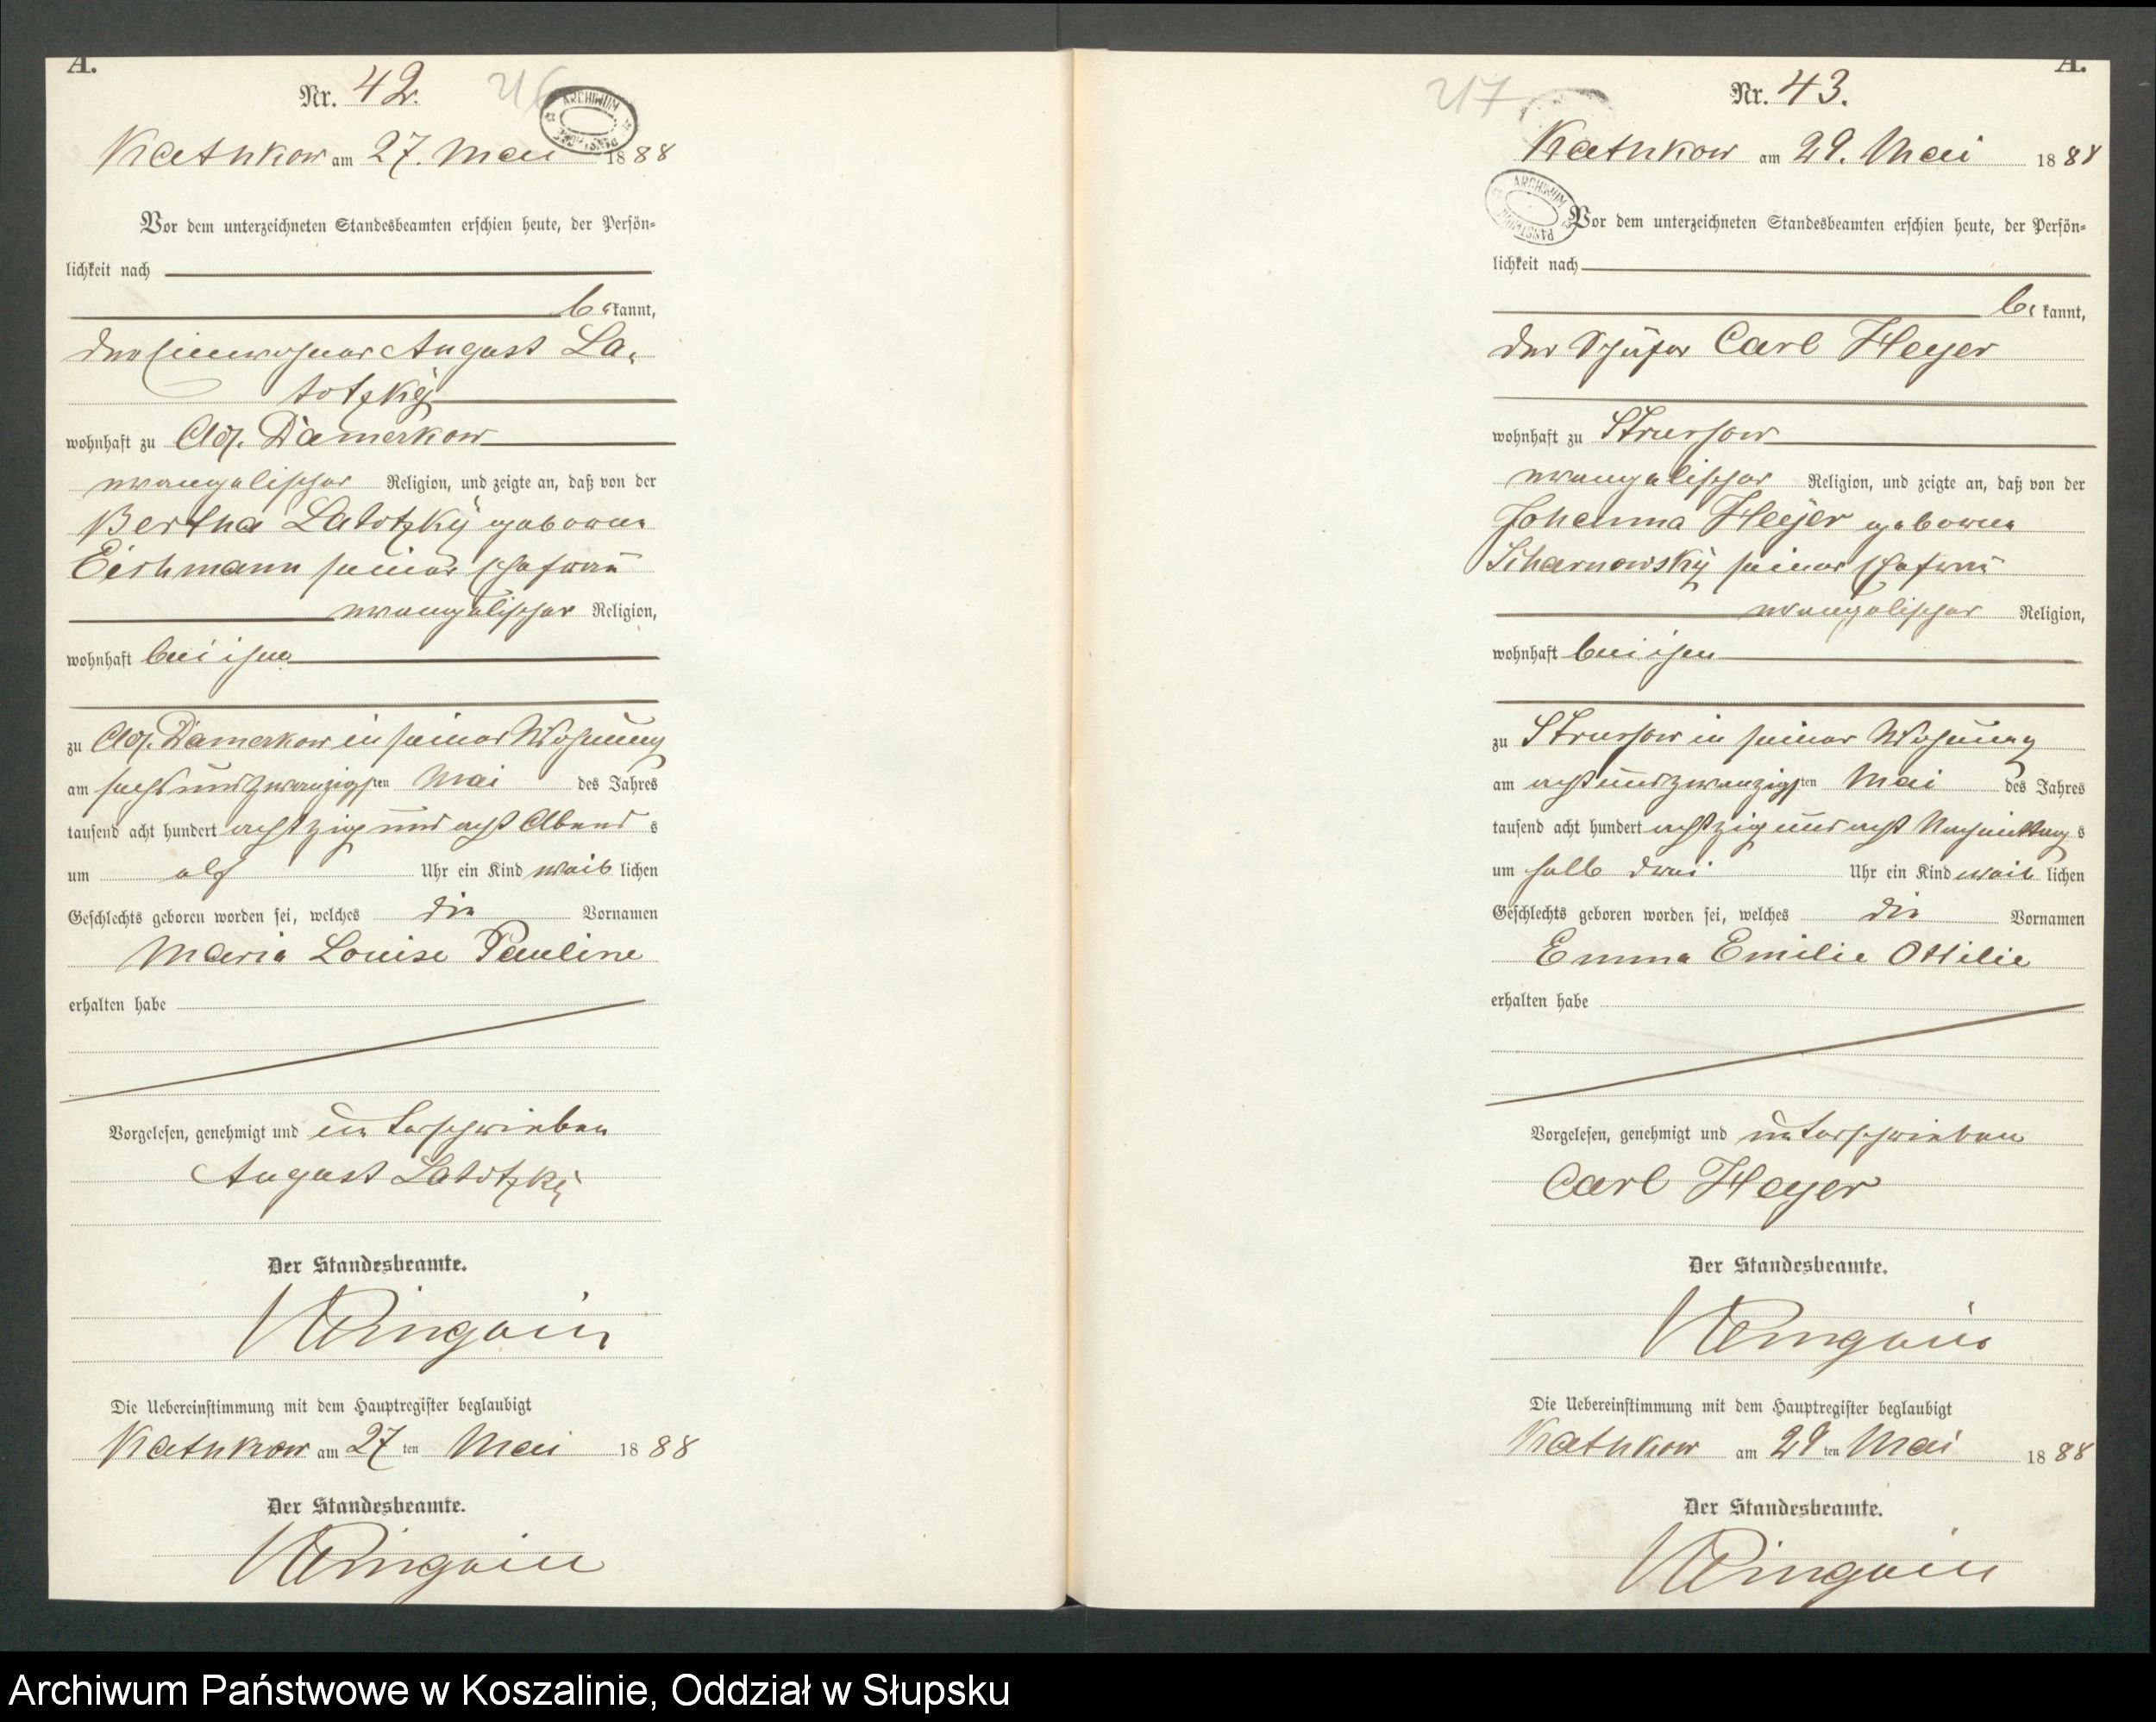 A.
Nr. 42.
Kathkow am 27. Mai 1888
Vor dem unterzeichneten Standesbeamten erschien heute, der Persön-
lichkeit nach
bekannt,
der Einwohner August La-
totzky
wohnhaft zu Adl. Damerkow
evangelischer Religion, und zeigte an, daß von der
Bertha Latotzky geboren
Eichmann seiner Ehefrau
evangelischer Religion,
wohnhaft bei ihm
zu Adl. Damerkow in seiner Wohnung
am sechsundzwanzigsten Mai des Jahres
tausend acht hundert achtzig und acht Abends
um elf Uhr ein Kind weiblichen
Geschlechts geboren worden sei, welches die Vornamen
Maria Louise Pauline
erhalten habe
Vorgelesen, genehmigt und unterschrieben
August Latotzky
Der Standesbeamte.
Die Uebereinstimmung mit dem Hauptregister beglaubigt
Kathkow am 27ten Mai 1888
Der Standesbeamte.
A.
217
Nr. 43.
Kathkow am 29. Mai 1888
ARCHIWUM PAŃSTWOWE
Vor dem unterzeichneten Standesbeamten erschien heute, der Persön-
lichkeit nach
bekannt,
der Schäfer Carl Heyer
wohnhaft zu Strussow
evangelischer Religion, und zeigte an, daß von der
Johanna Heyer geborene
Scharnowsky seiner Ehefrau
evangelischer Religion,
wohnhaft bei ihm
zu Strussow in seiner Wohnung
am achtundzwanzigsten Mai des Jahres
tausend acht hundert achtzig und acht Nachmittags
um halb drei Uhr ein Kind weiblichen
Geschlechts geboren worden sei, welches die Vornamen
Emma Emilie Ottilie
erhalten habe
Vorgelesen, genehmigt und unterschrieben
Carl Heyer
Der Standesbeamte.
Die Uebereinstimmung mit dem Hauptregister beglaubigt
Kathkow am 29ten Mai 1888
Der Standesbeamte.
Archiwum Państwowe w Koszalinie, Oddział w Słupsku